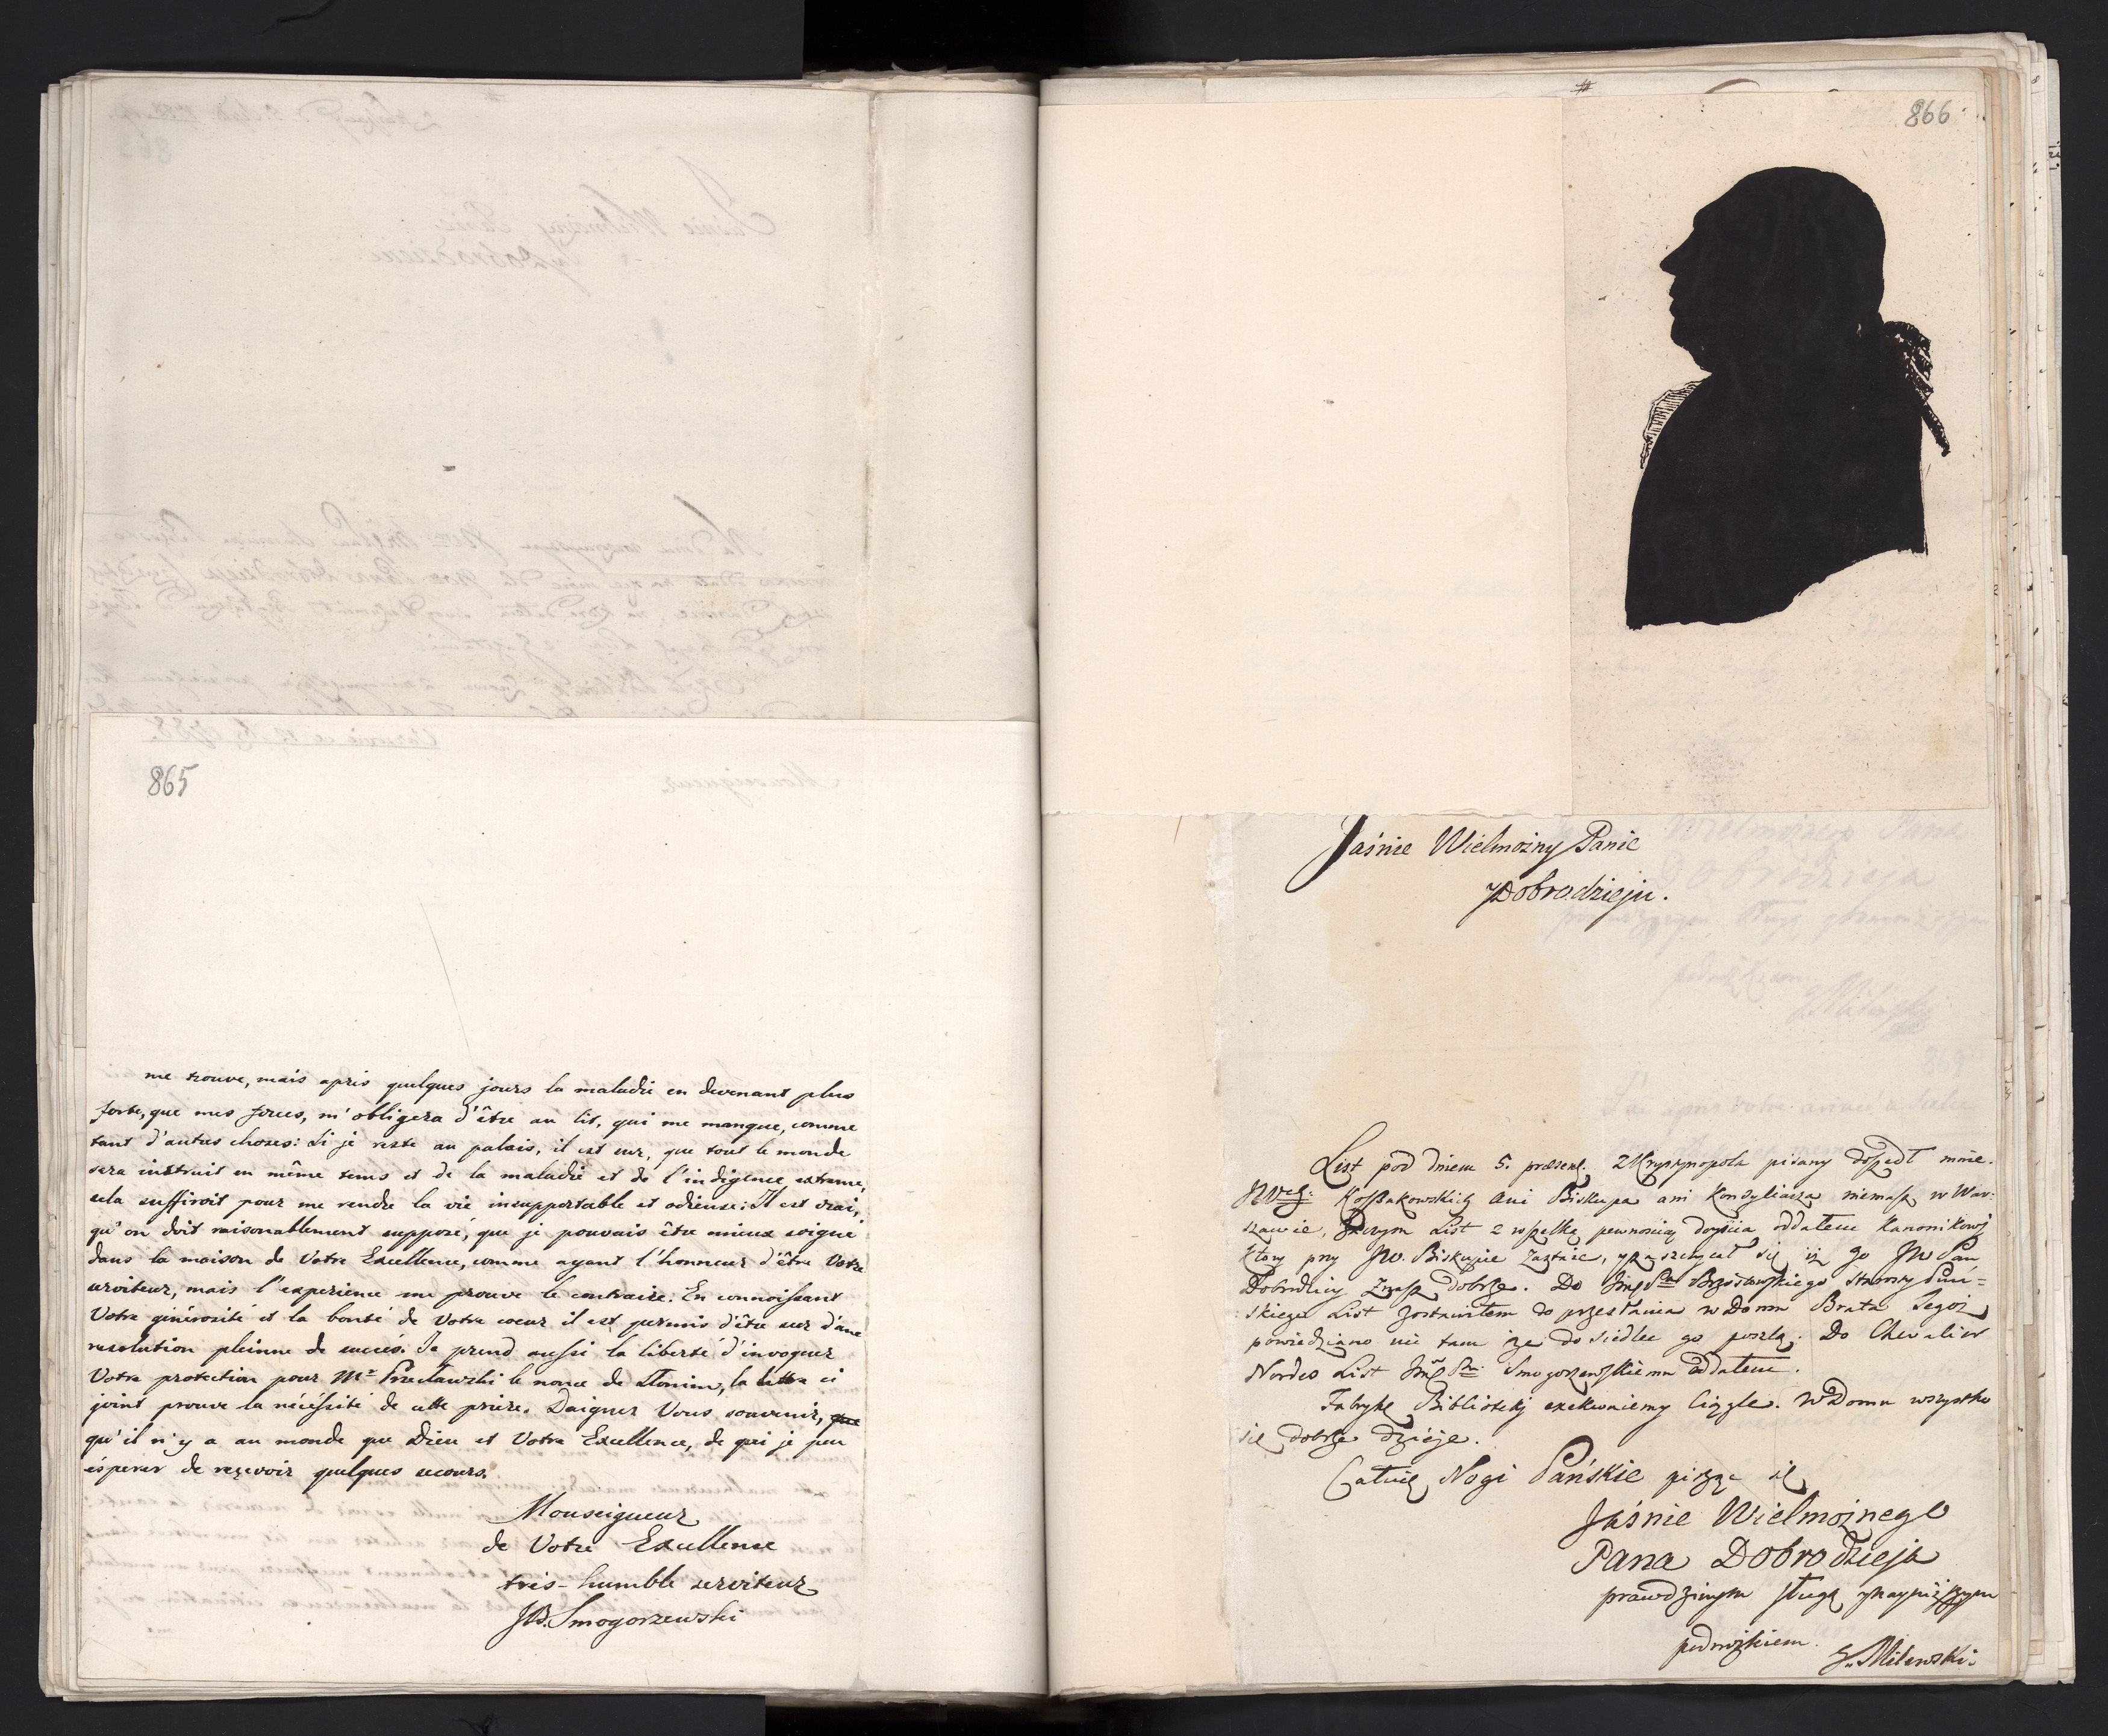 865
me trouve, mais apris quelques jours la maladie en devenant plus
forte, que mes forces, m'obligera d'être au lit, qui me manque, comme
tant d'autres choses: Si je reste au palais, il est sur, que tout le monde
sera instruit en même tems et de la maladie et de l'indigence extreme,
cela suffiroit pour me rendre la vie insupportable et odieuse: Il est vrai,
qu'on doit raisonablement supposé, que je pouvais être mieux soigné
dans la maison de Votre Excellence, comme ayant l'honneur d'être Votre
serviteur, mais l'experience me prouve le contraire. En connoissant
Votre générosité et la bonté de Votre coeur il est permis d'être sur d'une
resolution pleinne de succés. Je prend aussi la liberté d'invoquer
Votre protection pour Mr Przecławski le nonce de Słonim, la lettre ci
joint prouve la nécéssité de cette prière. Daignez Vous souvenir, que
qu'il n'y a au monde que Dieu et Votre Excellence, de qui je peu
ésperer de reçevoir quelques secours.
Monseigneur
de Votre Excellence
tres-humble serviteur
JB. Smogorzewski
#
866
Jaśnie Wielmożny Panie
Dobrodzieju.
List pod dniem 5. præsent. z Krystynopola pisany doszedł mnie.
JWch: Kossakowskich ani Biskupa ani Konsyliarza niemasz w War:
szawie, Zaczym List z wszelką pewnością doyścia oddałem Kanonikowi
ktory przy JW. Biskupie zastąie, y zaszczycał się iż go JW Pan
Dobrodziey znasz dobrze. Do Jmć Pna Brzostowskiego Starosty Puń=
skiego List zostawiłem do przesłania w Domu Brata Jegoż
powiedziano mi tam iże do Siedlec go poszlą. Do Chevalier
Nordes List Jmć Pnu Smogorzewskiemu oddałem.
Fabrykę Biblioteki exekwuiemy ciągle. W Domu wszystko
się dobrze dzieje.
Całuię Nogi Pańskie pisząc się
Jaśnie Wielmożnego
Pana Dobrodzieja
prawdziwym sługą y nayniższym
podnóżkiem.
J. Milewski.